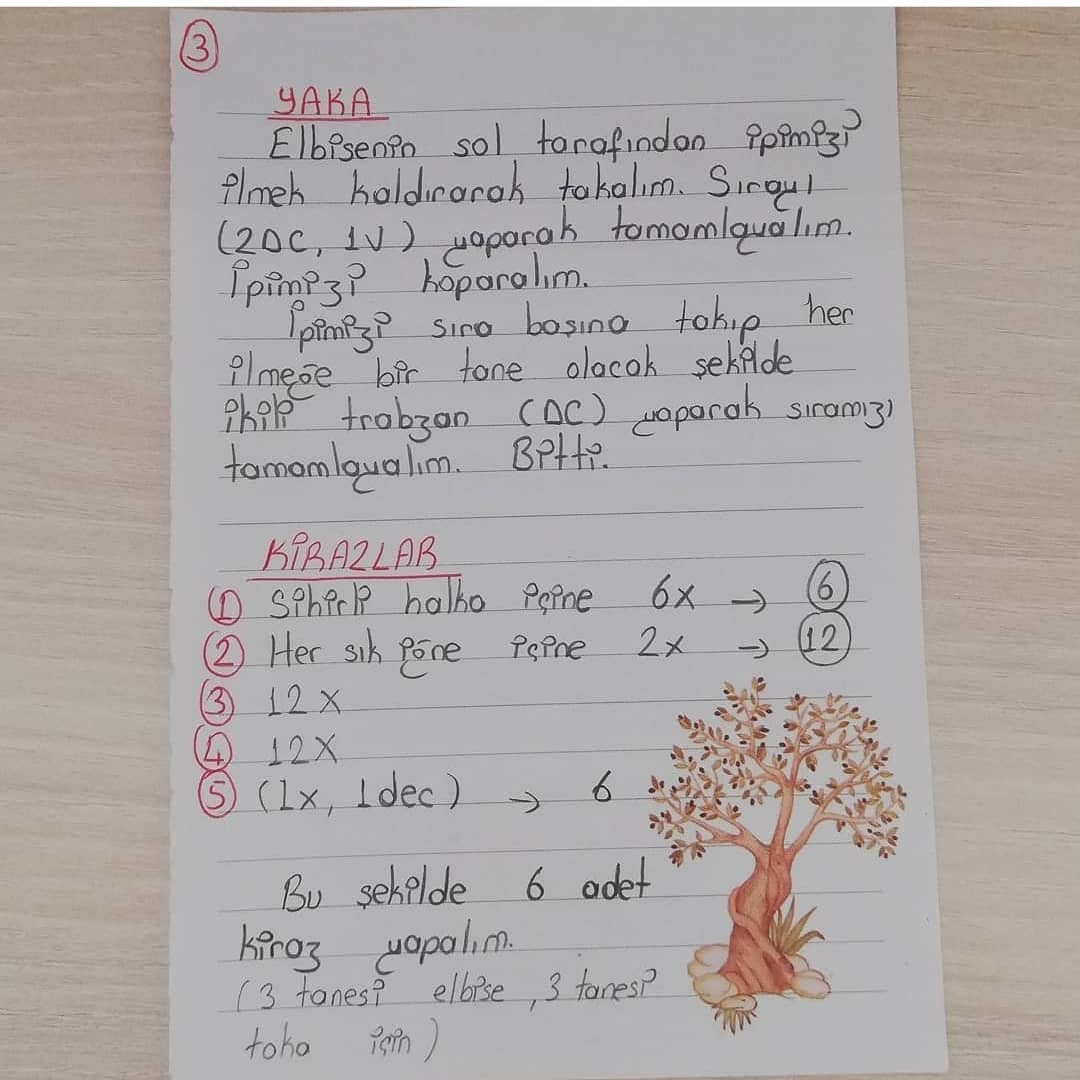 3
YAKA
Elbisenin sol tarafından ipimizi
ilmek kaldırarak takalım. Sırayı
(2DC, 1V) yaparak tamamlayalım.
İpimizi koparalım.
İpimizi sıra başına takıp her
ilmeğe bir tane olacak şekilde
ikili trabzan (DC) yaparak sıramızı
tamamlayalım. Bitti.
KİRAZLAR
1 Sihirli halka içine 6x → 6
2 Her sık iğne içine 2x → 12
3 12X
4 12X
5 (1x, 1dec) → 6
Bu şekilde 6 adet
kiraz yapalım.
(3 tanesi elbise, 3 tanesi
toka için)